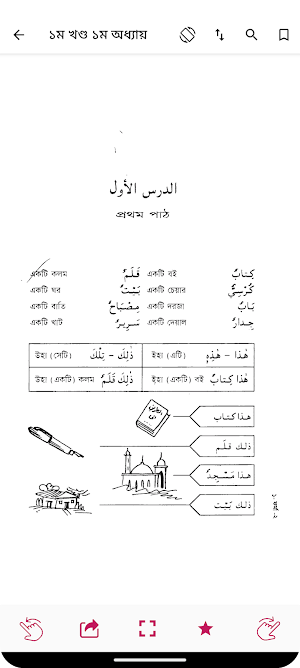 ১ম খণ্ড ১ম অধ্যায়
الدرس الأول
প্রথম পাঠ
كِتَابٌ একটি বই قَلَمٌ একটি কলম
كُرْسِيٌّ একটি চেয়ার بَيْتٌ একটি ঘর
بَابٌ একটি দরজা مِصْبَاحٌ একটি বাতি
جِدَارٌ একটি দেয়াল سَرِيرٌ একটি খাট
هٰذَا - هٰذِهِ ইহা (এটি) ذٰلِكَ - تِلْكَ উহা (সেটি)
هٰذَا كِتَابٌ ইহা (একটি) বই ذٰلِكَ قَلَمٌ উহা (একটি) কলম
هذا كتاب
ذلك قلم
هذا مَسْجِدٌ
ذلك بَيْت